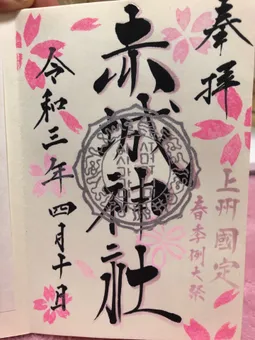 奉拝
上州國定
春季例大祭
赤城神社
令和三年四月十日